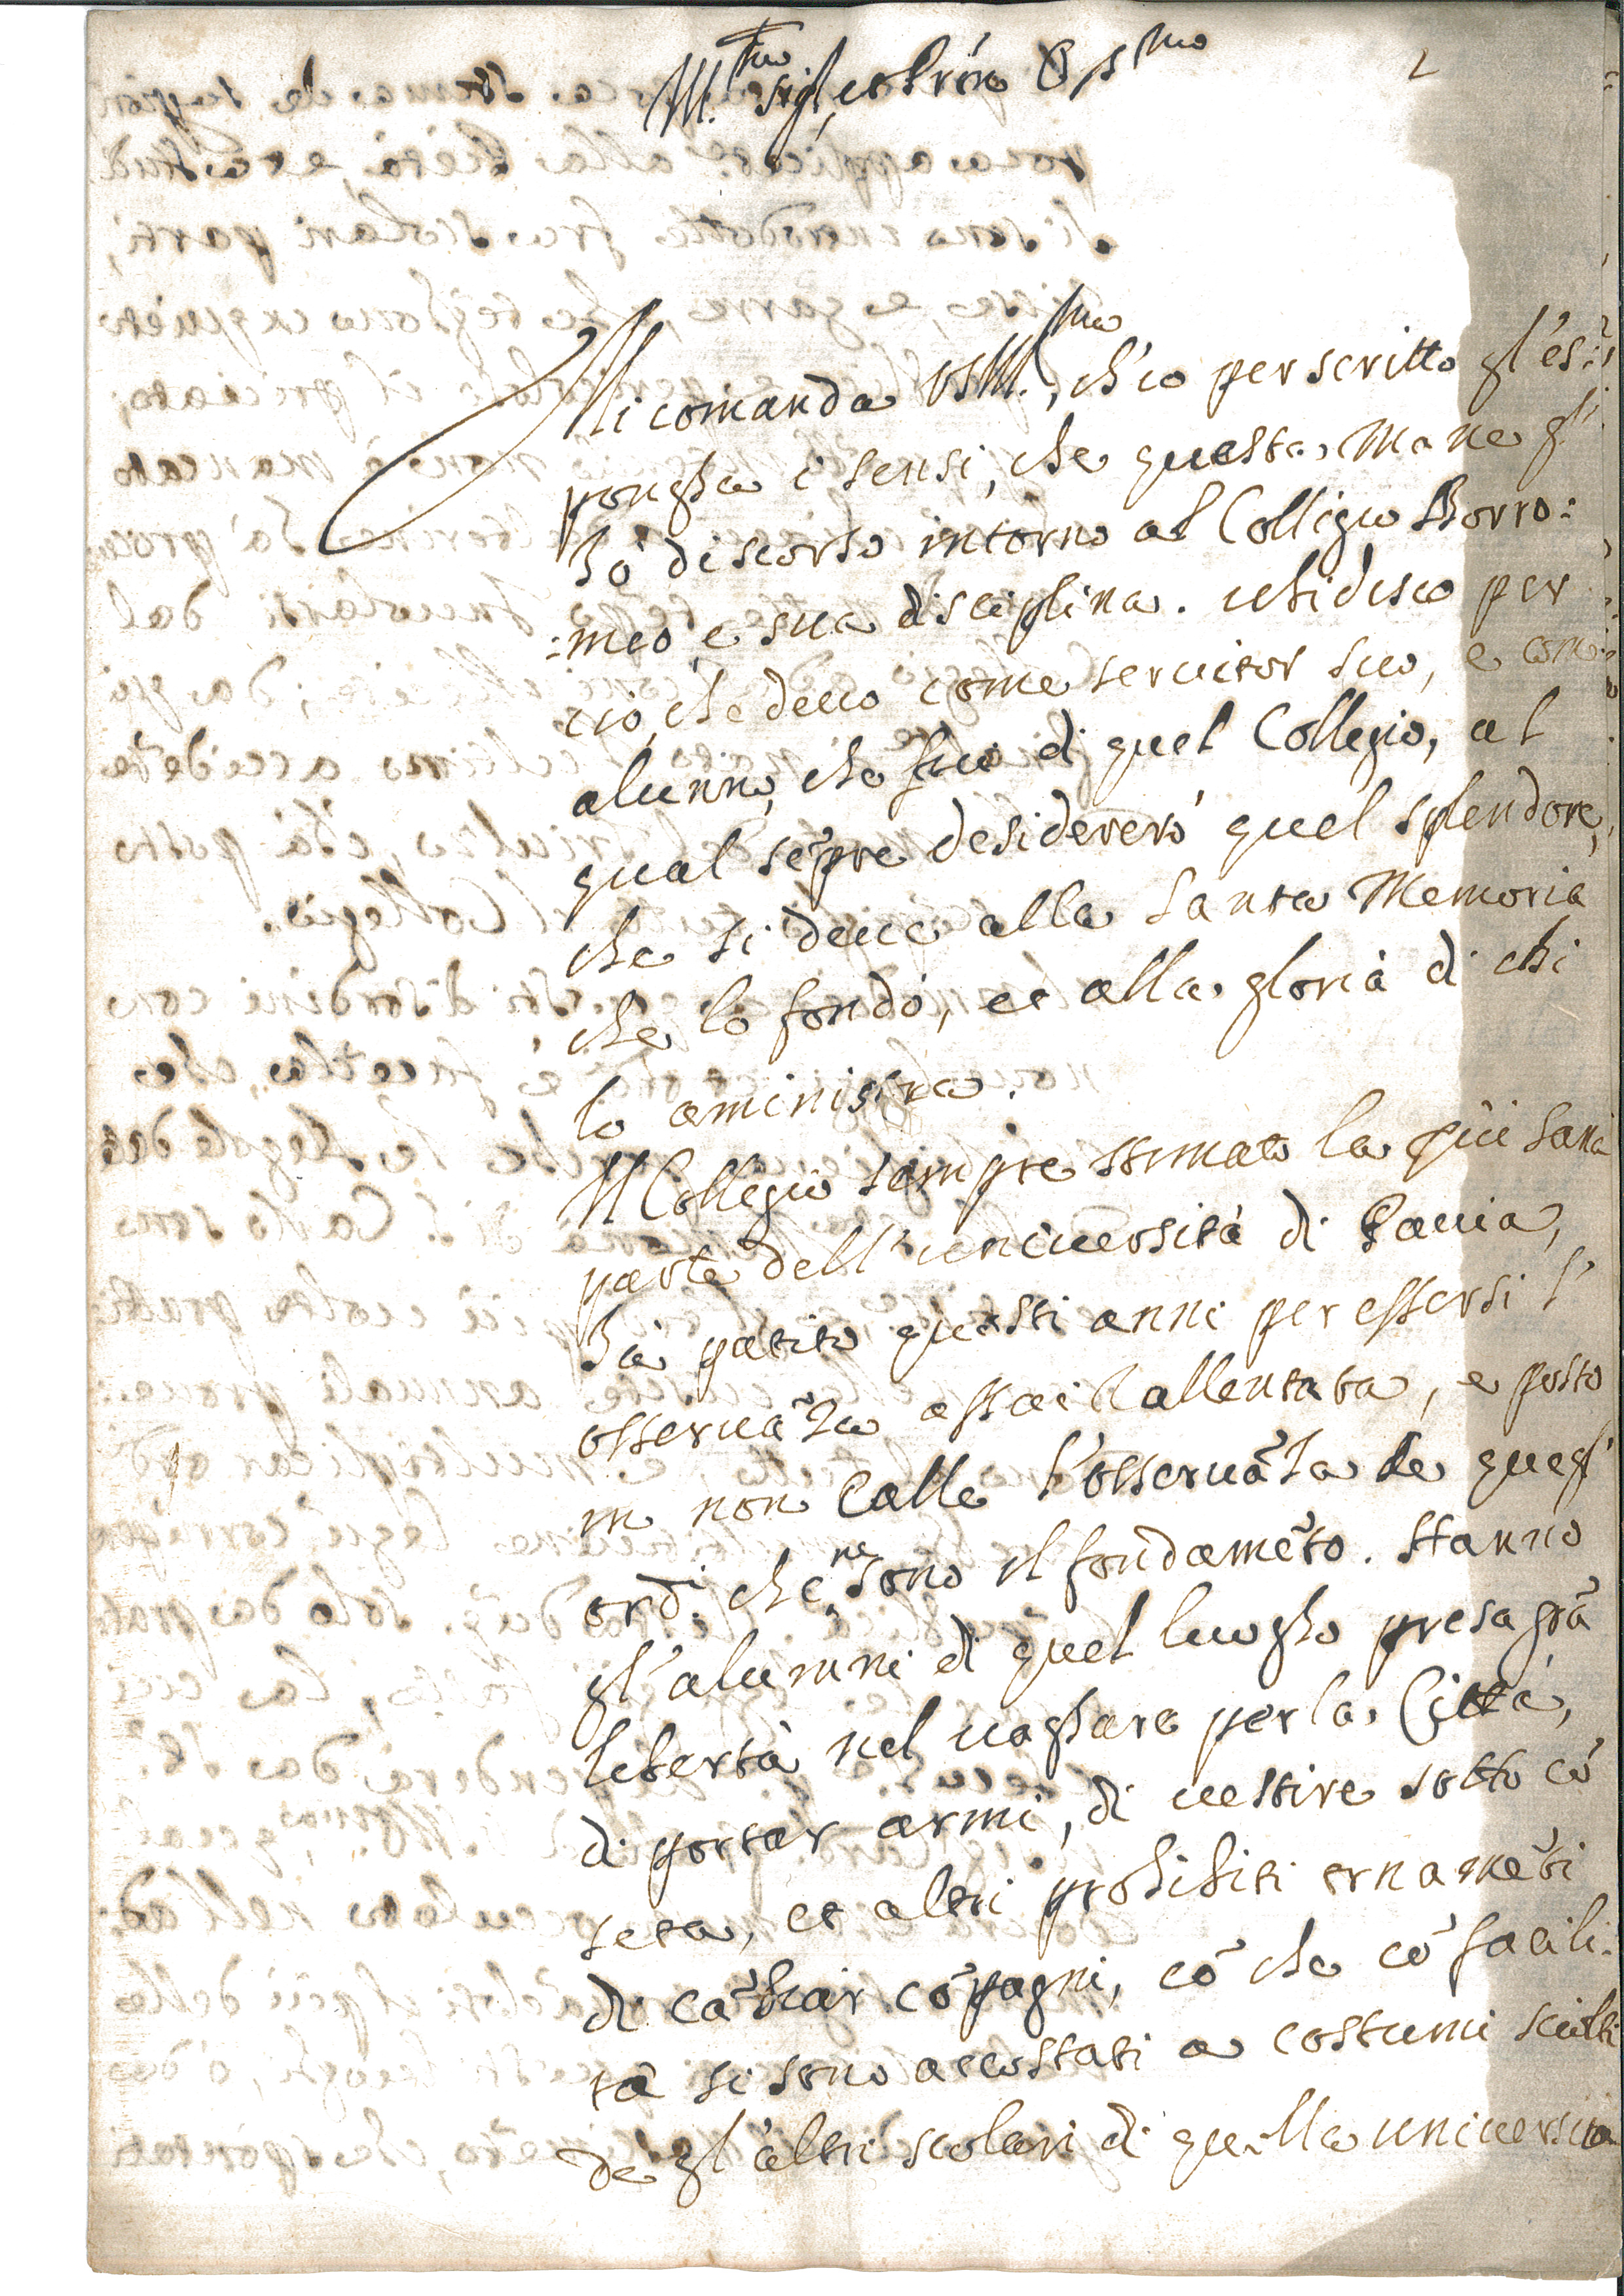 Ill.mo sig.r, et Pròn Oss.mo
Mi comanda VSIll.ma, ch'io per scritto gl'es:
ponghi i sensi, che questa Mane gl'
hò discorso intorno al Collegio Borro:
:meo, e sua disciplina. ubidisco per
ciò, che deuo come seruitor suo, e come
alunno, che fui di quel Collegio, al
qual sẽpre desidererò quel splendore,
che si deue alla Santa Memoria
che lo fondò, et alla gloria di chi
lo aministra.
Il Collegio sempre stimato la più sana
parte dell'uniuersità di Pauia,
hà patito questi anni per essersi l'
osseruãza assai rallentata, e posto
in non calle l'osseruãza de quegl'
ord.i che ne sono il fondamẽto. Stanno
gl'alunni di quel luogho presa grã
libertà nel uaghare per la Città,
di portar armi, di uestire sotto cõ
seta, et altri prohibiti ornamẽti
di cãbiar cõpagni, cõ che cõ facili:
tà si sono accostati a costumi sciolti
de gl'altri scolari di quella uniuersità